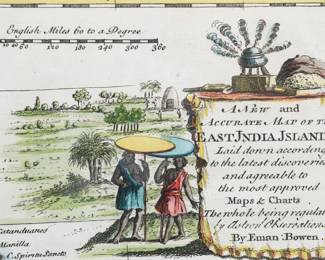 English Miles 60 to a Degree
20 40 60 120 180 240 300 360
A New and
Accurate Map of the
East India Islands
Laid down according
to the latest discoveries
and agreeable to
the most approved
Maps & Charts
The whole being regulated
by Astron.l Observations
By Eman: Bowen.
Catanduanes
Manilla
C. Spiritu Sancto